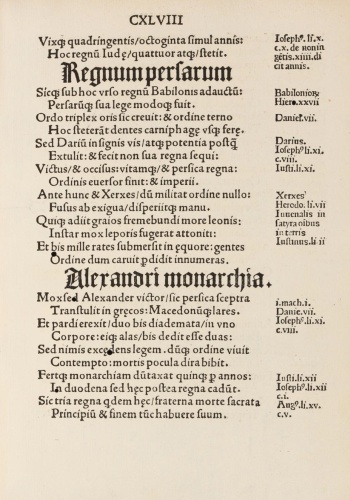 CXLVIII
Vixq; quadringentis/octoginta simul annis:
Hoc regnū Iudę/quattuor atq;/stetit.
Regnum persarum
Sicq; sub hoc vrso regnū Babilonis adauctū:
Persarūq; sua lege modoq; fuit.
Ordo triplex oris sic creuit: & ordine terno
Hoc steterāt dentes carniphagę vrsę ferę.
Sed Dariū insignis vis/atq; potentia postq̄
Extulit: & fecit non sua regna sequi:
Victus/& occisus: vitamq;/& persica regna:
Ordinis euersor finit: & imperii.
Ante hunc & Xerxes/dū militat ordine nullo:
Fusus ab exigua/disperiitq; manu.
Quiq; adiit graios fremebundi more leonis:
Instar mox leporis fugerat attoniti:
Et bis mille rates submersit in ęquore: gentes
Ordine dum caruit pdidit innumeras.
Alexandri monarchia.
Mox sed Alexander victor/sic persica sceptra
Transtulit in gręcos: Macedonūq; lares.
Et pardi erexit/duo bis diademata/in vno
Corpore: eiq; alas/bis dedit esse duas:
Sed nimis excedens legem. dūq; ordine viuit
Contempto: mortis pocula dira bibit.
Fertq; monarchiam dūtaxat quinq; p annos:
In duodena sed hęc postea regna cadūt.
Sic tria regna qdem hęc/fraterna morte sacrata
Principiū & finem tūc habuere suum.
Ioseph⁹ li.x.
c.x. de non in
gētis.xiiii.di
cit annis.
Babilonior̄
Hiero.xxvii
Daniel.vii.
Darius.
Ioseph⁹ li.xi.
c.viii.
Iusti.li.xi.
Xerxes
Herodo.li.vii
Iuuenalis in
satyra oibus
in terris
Iustinus.li ii
i.mach.i.
Danie.vii.
Ioseph⁹ li.xi.
c.viii.
Iusti.li.xii
Ioseph⁹.li.xii
c.i.
Aug⁹.li.xv.
c.v.